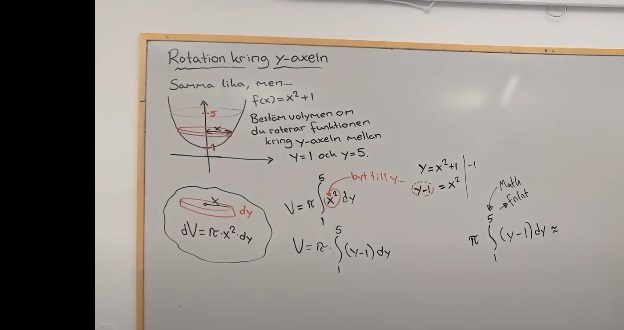 Rotation kring y-axeln
Samma lika, men...
f(x)=x²+1
5
x
1
Bestäm volymen om
du roterar funktionen
kring y-axeln mellan
y=1 och y=5.
x
dy
dV=π·x²·dy
V=π ∫₁⁵ x² dy
byt till y
V=π·∫₁⁵ (y-1)dy
y=x²+1 | -1
y-1=x²
Math
→fnInt
π ∫₁⁵ (y-1)dy ≈